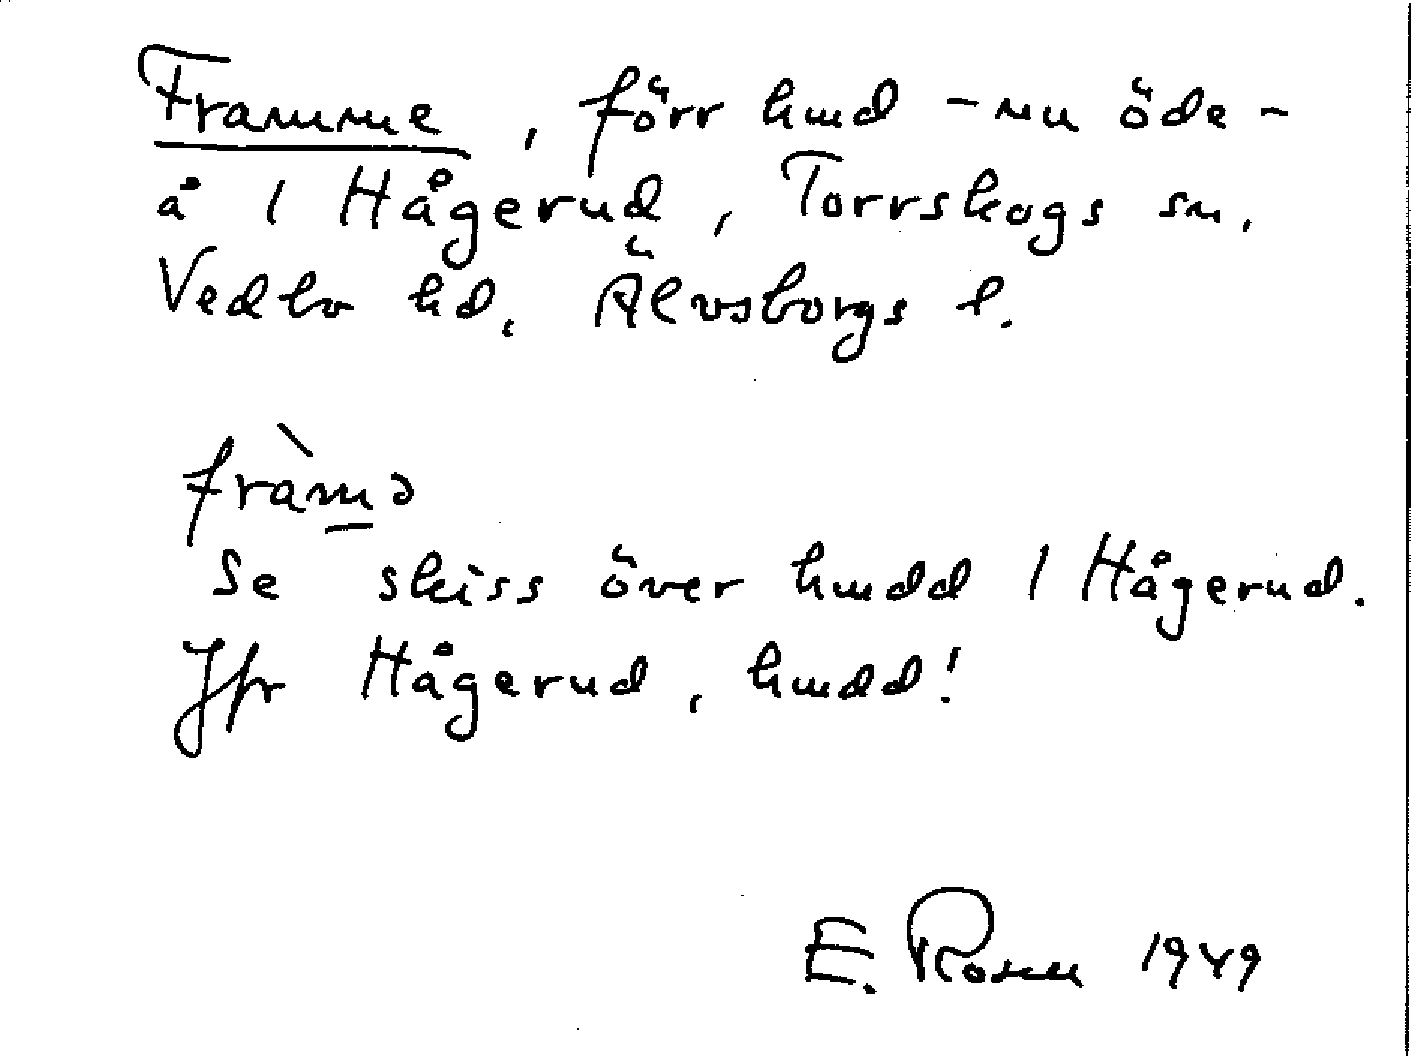 Framme, förr hmd - nu öde -
å 1 Hågerud, Torrskogs sn.
Vedbo hd, Älvsborgs l.
fràmə
Se skiss över hmdd 1 Hågerud.
Jfr Hågerud, hmdd!
E. Rosen 1949